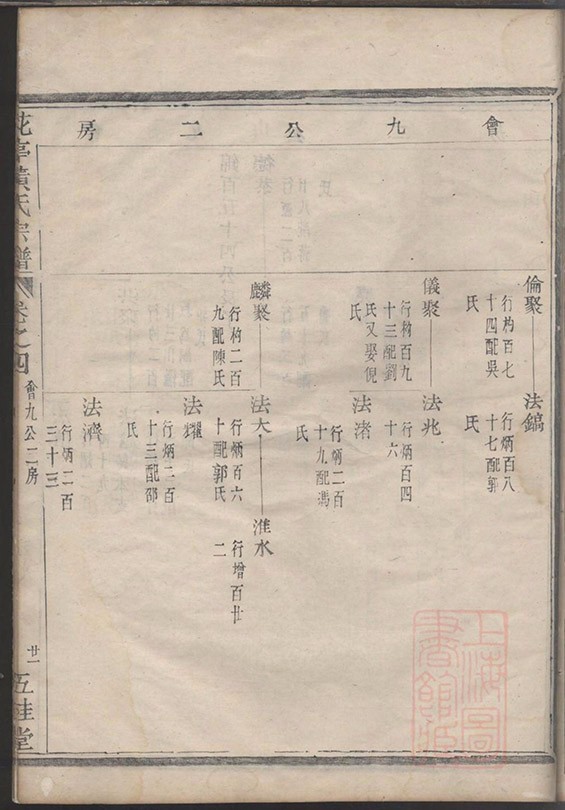 會九公二房
倫聚
行杓百七
十四配吳
氏
法鎬
行炳百八
十七配郭
氏
儀聚
行杓百九
十三配劉
氏又娶倪
氏
法兆
行炳百四
十六
法渚
行炳二百
十九配馮
氏
麟聚
行杓二百
九配陳氏
法大
行炳百六
十配郭氏
淮水
行增百廿
二
法耀
行炳二百
十三配邵
氏
法濟
行炳二百
三十三
花亭黃氏宗譜
卷之四
會九公二房
廿一
五桂堂
上海圖書館藏